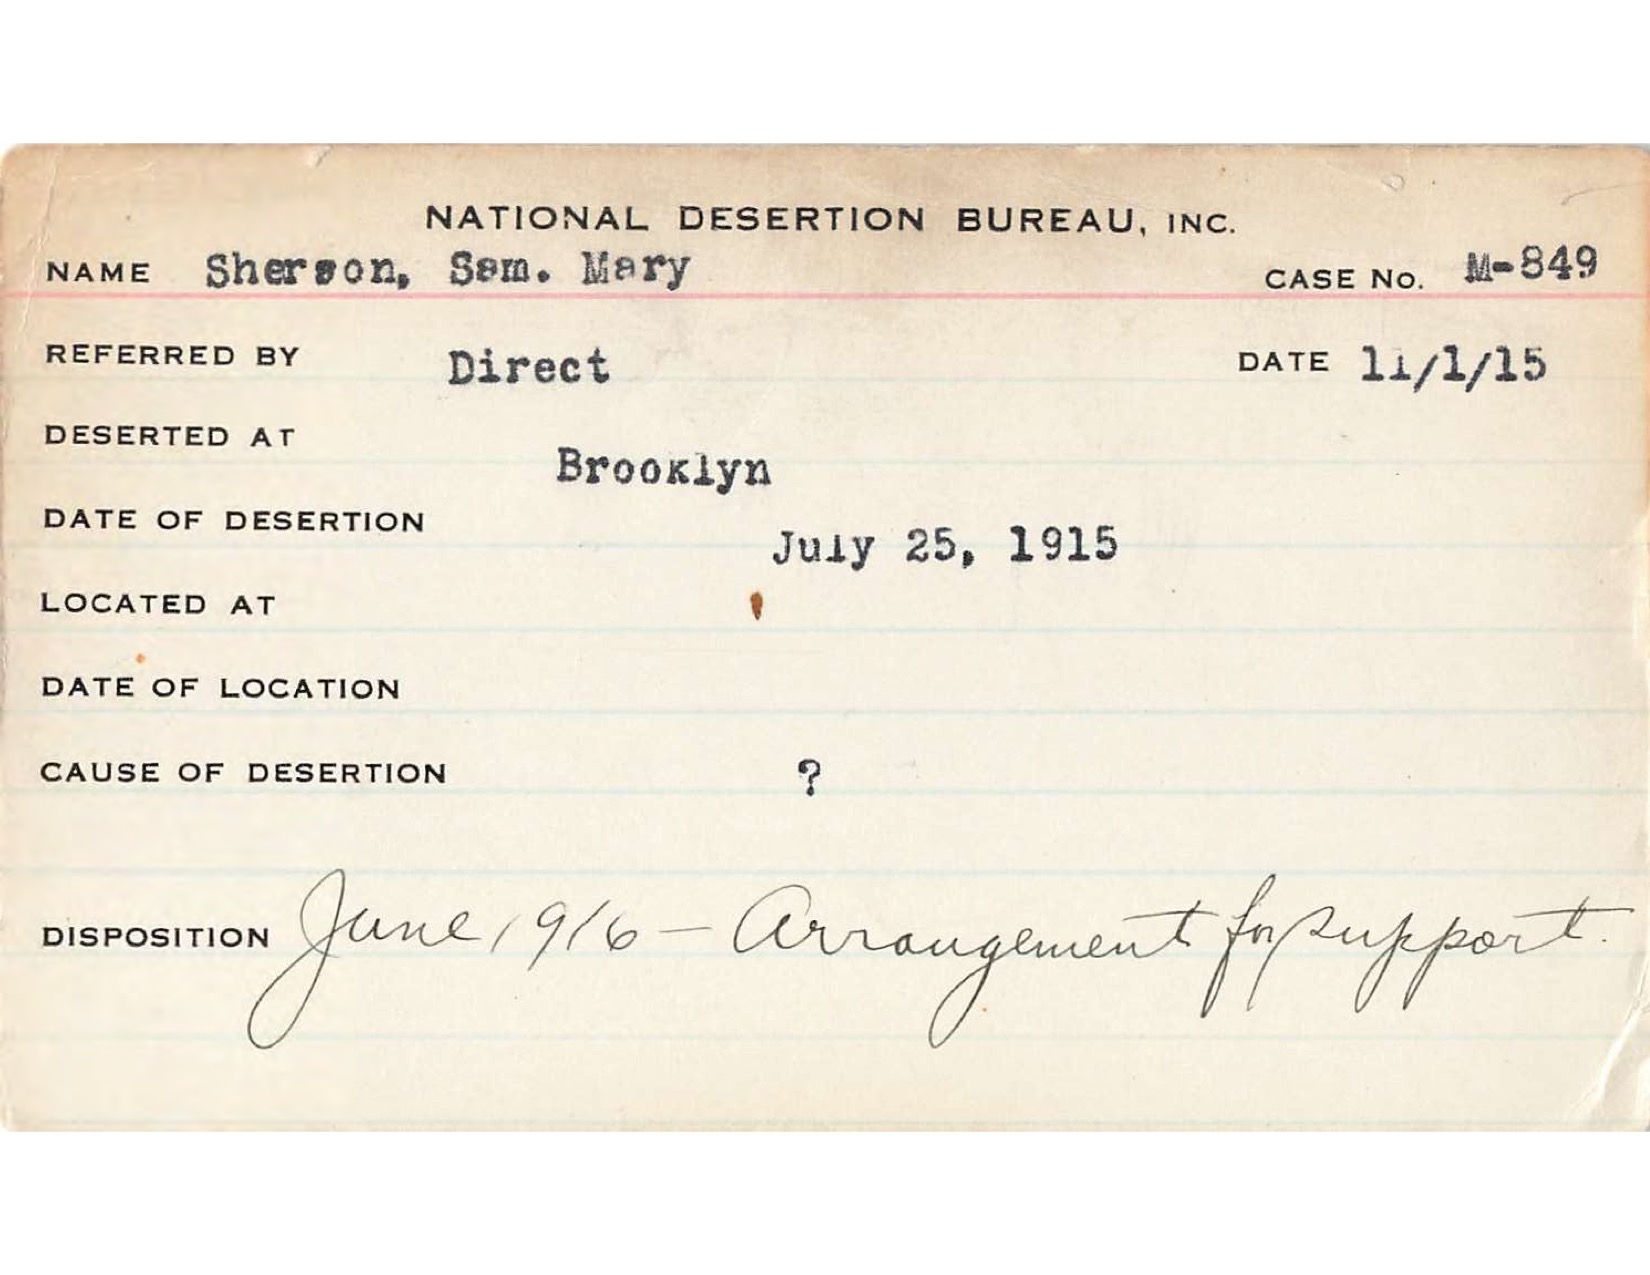 NATIONAL DESERTION BUREAU, INC.
NAME Sherson, Sam. Mary CASE No. M-849
REFERRED BY Direct DATE 11/1/15
DESERTED AT Brooklyn
DATE OF DESERTION July 25, 1915
LOCATED AT
DATE OF LOCATION
CAUSE OF DESERTION ?
DISPOSITION June 1916 — Arrangement for support.